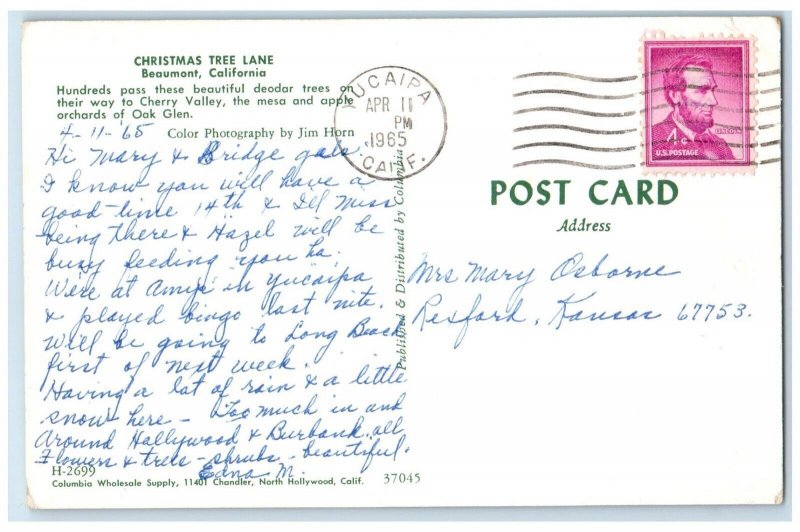 CHRISTMAS TREE LANE
Beaumont, California
Hundreds pass these beautiful deodar trees on
their way to Cherry Valley, the mesa and apple
orchards of Oak Glen.
4-11-65 Color Photography by Jim Horn
Hi Mary & Bridge gals.
I know you will have a
good-time 14th & I'll miss
being there & Hazel will be
busy feeding you ha.
Were at Amys in Yucaipa
& played bingo last nite.
Will be going to Long Beach
first of next week.
Having a lot of rain & a little
snow here - Too much in and
around Hollywood & Burbank. all
Flowers & trees - shrubs - beautiful.
Edna M.
H-2699
Columbia Wholesale Supply, 11401 Chandler, North Hollywood, Calif. 37045
Published & Distributed by Columbia
YUCAIPA
APR 11
PM
1965
CALIF.
4¢
LINCOLN
U.S. POSTAGE
POST CARD
Address
Mrs Mary Osborne
Rexford, Kansas 67753.